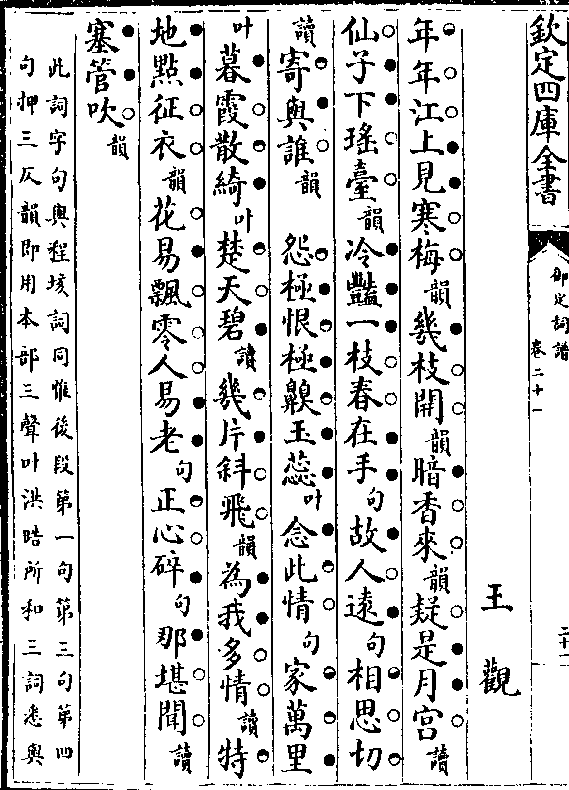 欽定四庫全書
御定詞譜
卷二十一
二十一
王觀
年年江上見寒梅韻幾枝開韻暗香來韻疑是月宮讀
仙子下瑤臺韻冷豔一枝春在手句故人遠句相思切
讀寄與誰韻　怨極恨極齅玉蕊叶念此情句家萬里
叶暮霞散綺叶楚天碧讀幾片斜飛韻為我多情讀特
地點征衣韻花易飄零人易老句正心碎句那堪聞讀
塞管吹韻
此詞字句與程垓詞同惟後段第一句第三句第四
句押三仄韻即用本部三聲叶洪皓所和三詞悉與